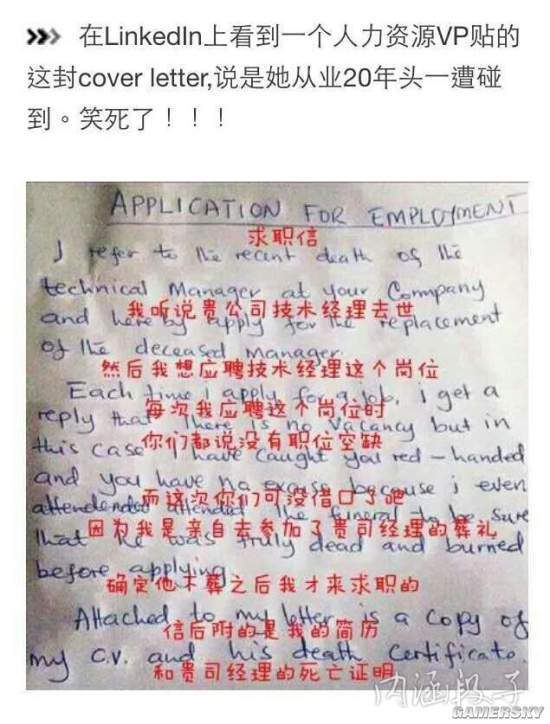 在LinkedIn上看到一个人力资源VP贴的
这封cover letter,说是她从业20年头一遭碰
到。笑死了！！！
APPLICATION FOR EMPLOYMENT
求职信
I refer to the recent death of the
technical Manager at your Company
我听说贵公司技术经理去世
and here by apply for the replacement
of the deceased manager.
然后我想应聘技术经理这个岗位
Each time i apply for a job, i get a
每次我应聘这个岗位时
reply that there is no vacancy but in
你们都说没有职位空缺
this case I have caught you red-handed
and you have no excuse because i even
而这次你们可没借口了吧
attendended attended the funeral to be sure
因为我是亲自去参加了贵司经理的葬礼
that he was truly dead and burried
before applying
确定他下葬之后我才来求职的
Attached to my letter is a copy of
信后附的是我的简历
my C.V. and his death certificate.
和贵司经理的死亡证明
内涵段子
GAMERSKY